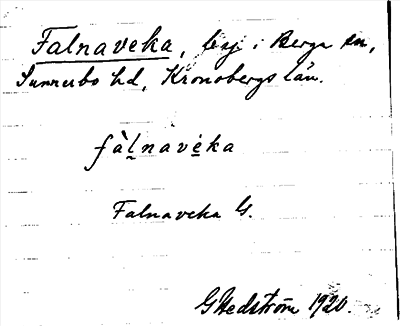 Falnaveka, by i Berga sn,
Sunnerbo hd, Kronobergs län.
fàlnavèka
Falnaveka G.
G Hedström 1920.